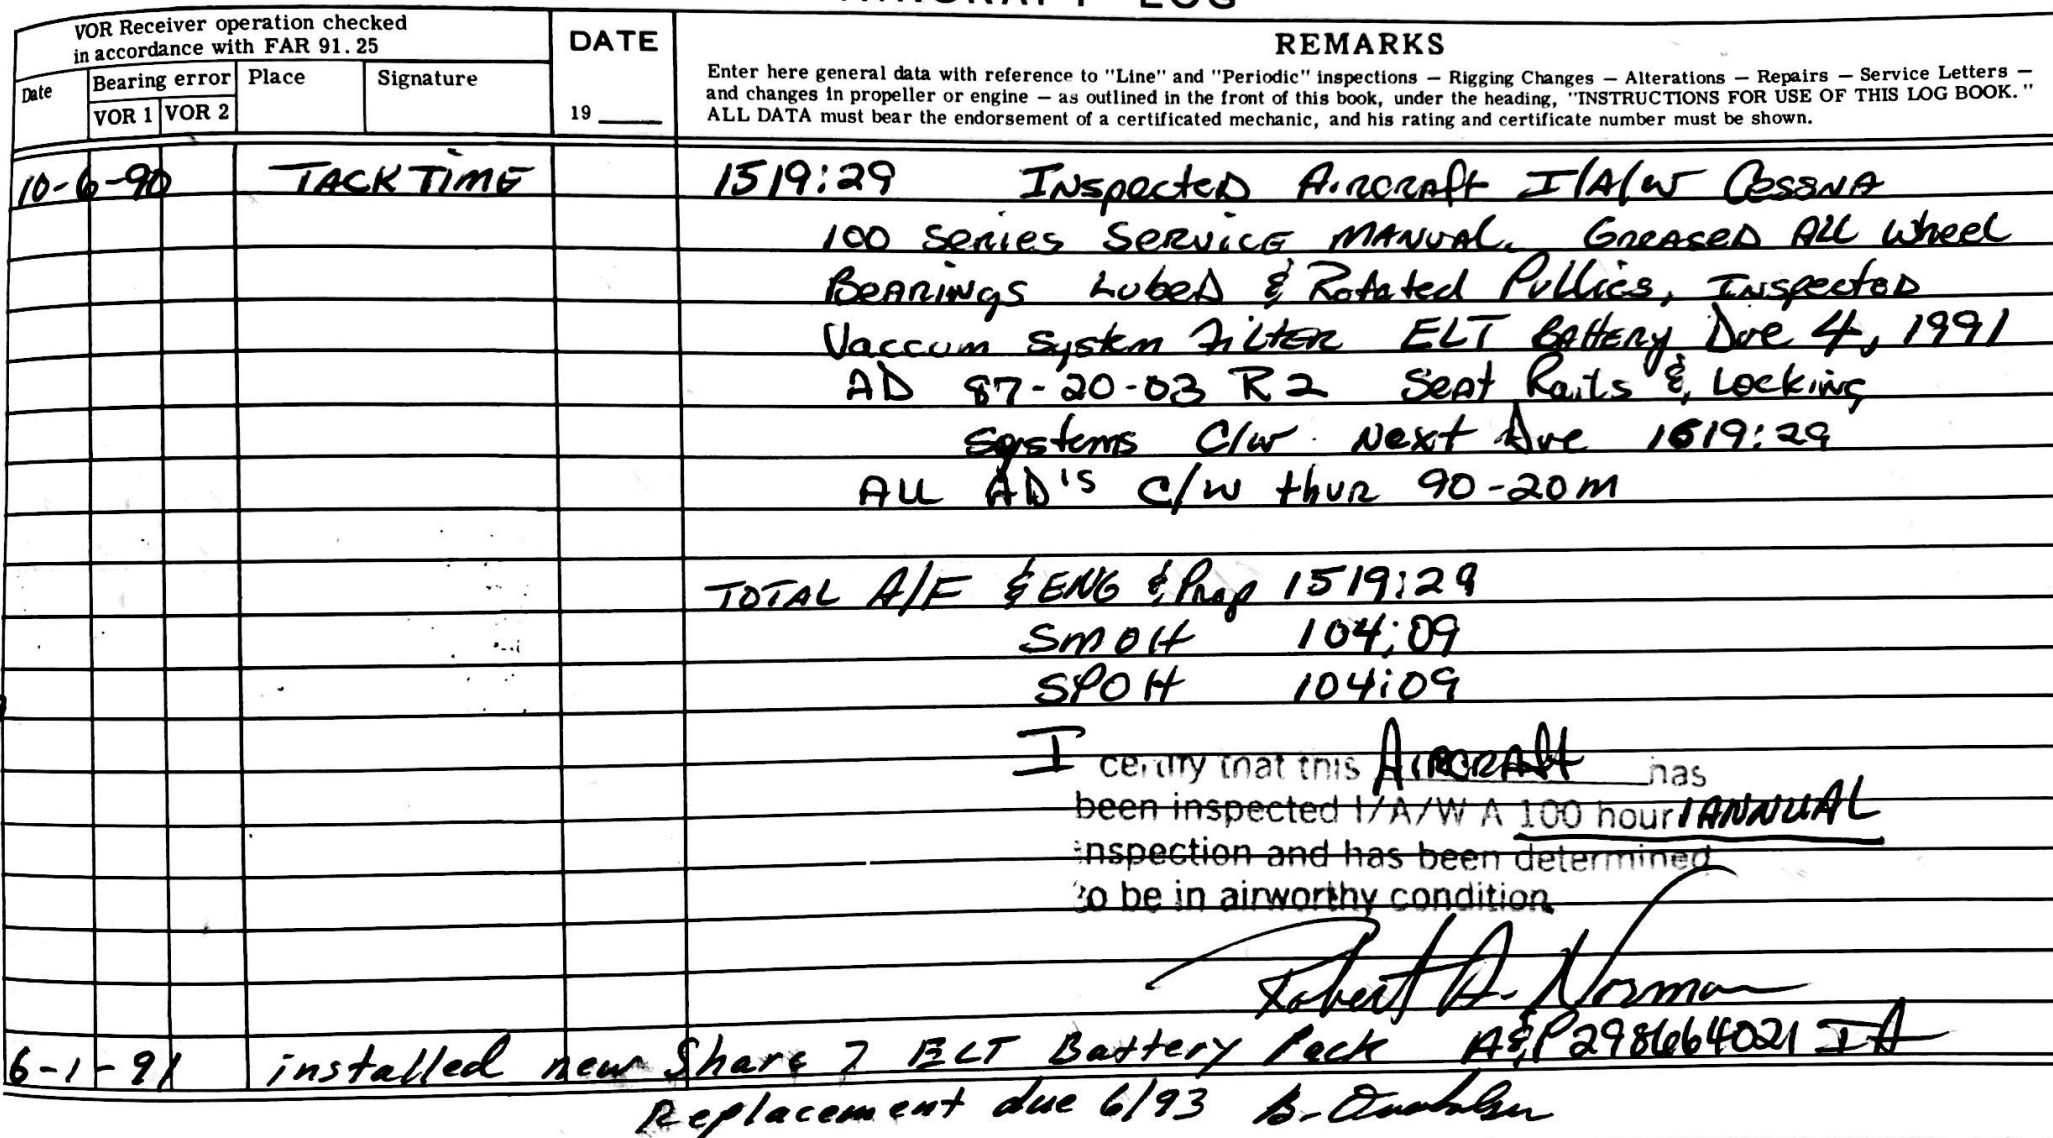 AIRCRAFT LOG
VOR Receiver operation checked
in accordance with FAR 91.25
Date
Bearing error
VOR 1 VOR 2
Place
Signature
DATE
19
REMARKS
Enter here general data with reference to "Line" and "Periodic" inspections — Rigging Changes — Alterations — Repairs — Service Letters —
and changes in propeller or engine — as outlined in the front of this book, under the heading, "INSTRUCTIONS FOR USE OF THIS LOG BOOK."
ALL DATA must bear the endorsement of a certificated mechanic, and his rating and certificate number must be shown.
10-6-90 TACK TIME 1519:29 Inspected Aircraft I/A/W Cessna
100 Series Service Manual. Greased All Wheel
Bearings Lubed & Rotated Pullies, Inspected
Vaccum System Filter ELT Battery Due 4, 1991
AD 87-20-03 R2 Seat Rails & Locking
Systems C/W Next Due 1619:29
ALL AD'S C/W thur 90-20M
TOTAL A/F & ENG & Prop 1519:29
SMOH 104:09
SPOH 104:09
I certify that this Aircraft has
been inspected I/A/W A 100 hour/ANNUAL
inspection and has been determined
to be in airworthy condition
Robert A. Norman
A&P 298664021 IA
6-1-91 installed new Share 7 ELT Battery Pack
Replacement due 6/93 B.